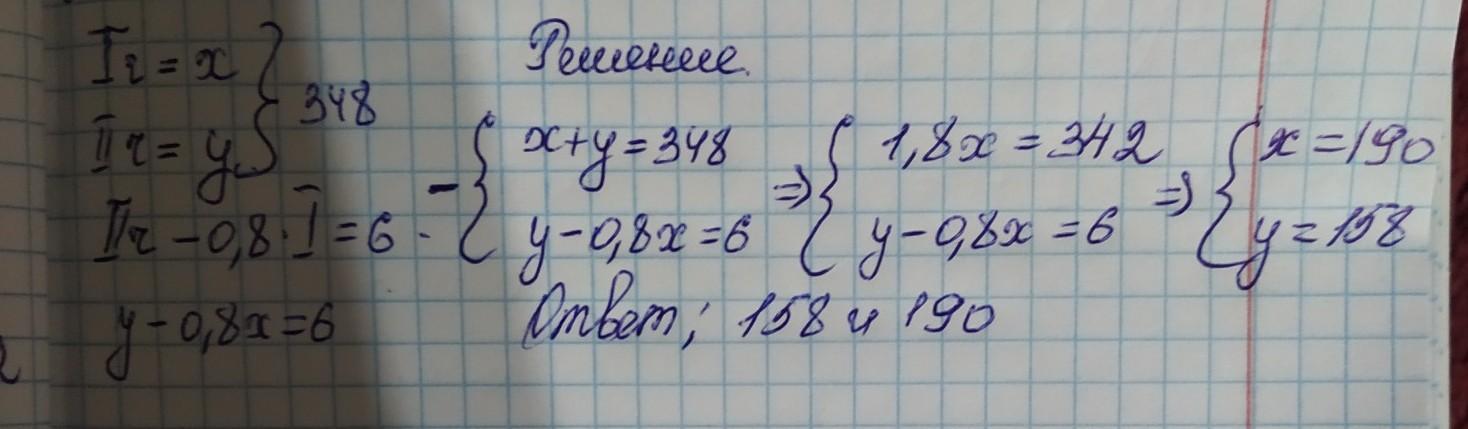 Iч = x
IIч = y } 348
IIч - 0,8 · I = 6.
y - 0,8x = 6
Решение.
- { x + y = 348 => { 1,8x = 342 => { x = 190
y - 0,8x = 6 y - 0,8x = 6 y = 158
Ответ; 158 и 190